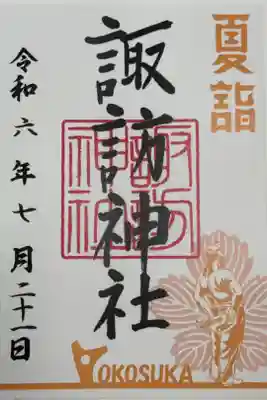 夏詣
諏訪神社
諏訪
神社
令和六年七月二十一日
YOKOSUKA